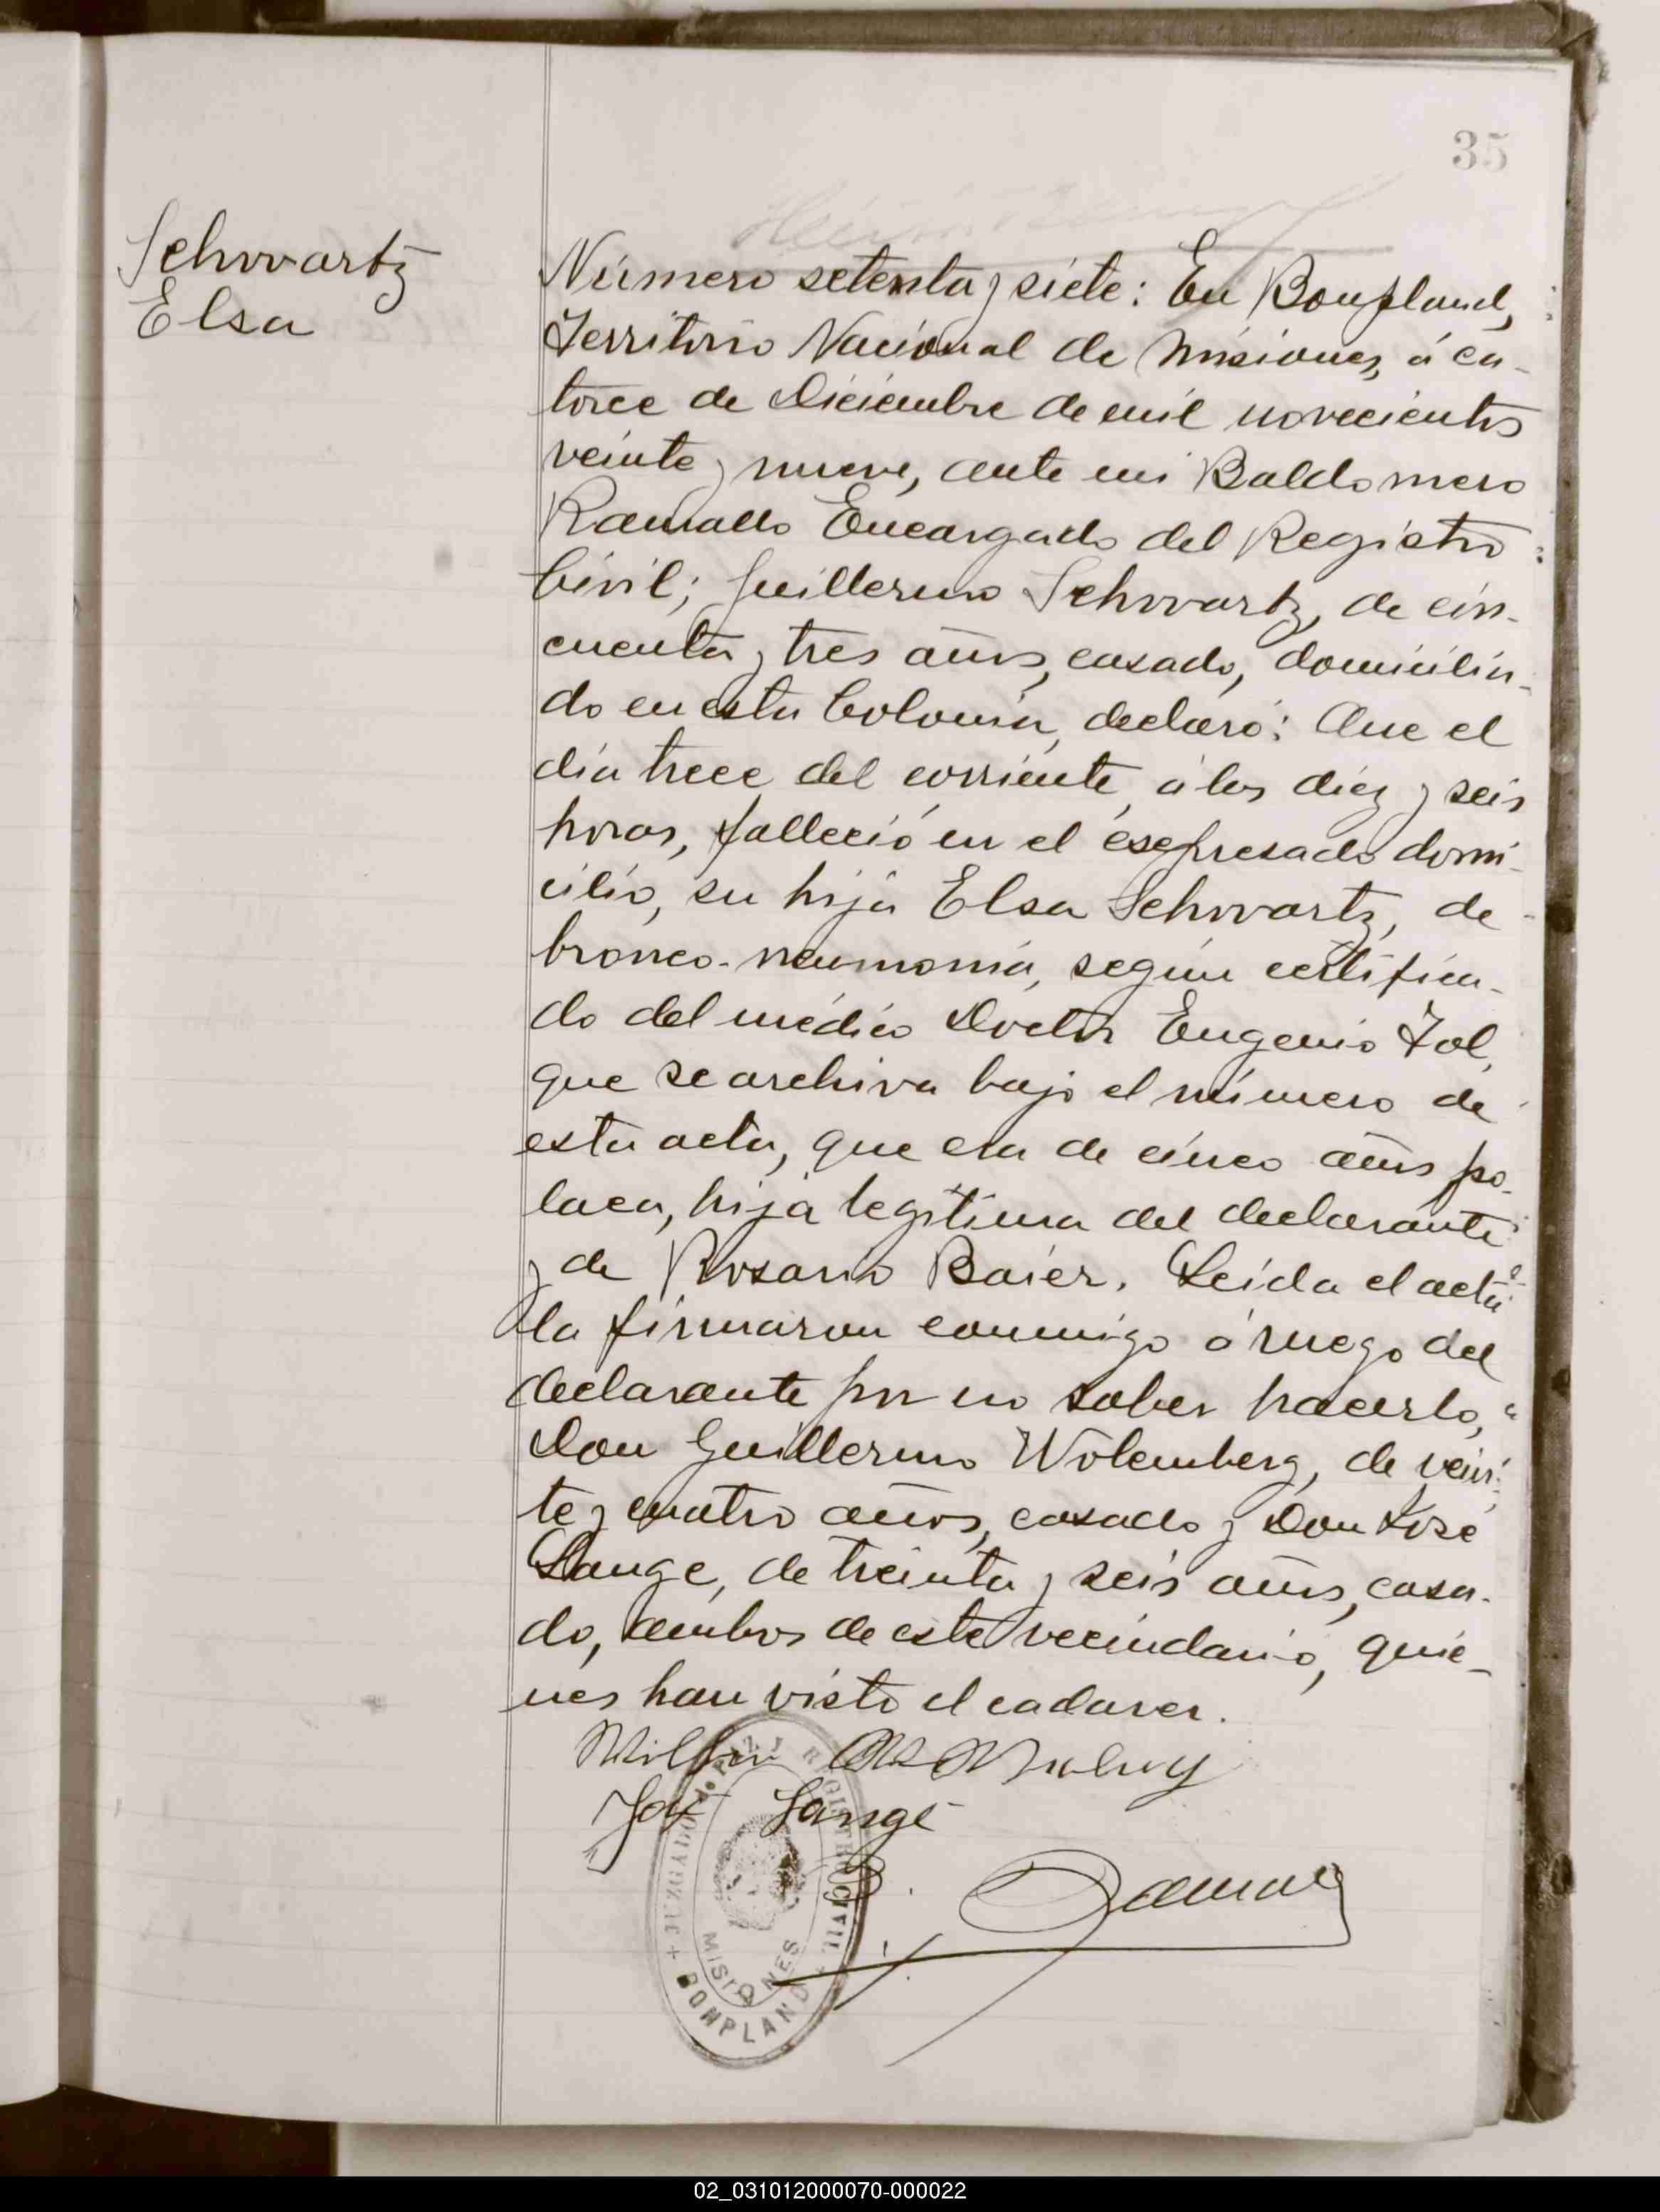 35
Schwartz
Elsa
Número setenta y siete: En Bonpland,
Territorio Nacional de Misiones, á ca-
torce de Diciembre de mil novecientos
veinte y nueve, ante mi Baldomero
Ramallo Encargado del Registro
Civil; Guillermo Schwartz, de cin-
cuenta y tres años, casado, domicilia-
do en esta Colonia, declaró: Que el
día trece del corriente, á las diez y seis
horas, falleció en el expresado domi-
cilio, su hija Elsa Schwartz, de
bronco-neumonia, según certifica-
do del médico Doctor Eugenio Fol,
que se archiva bajo el número de
esta acta, que era de cinco años po-
laca, hija legítima del declarante
y de Rosario Baier. Leida el acta
la firmaron conmigo á ruego del
declarante por no saber hacerlo,
Don Guillermo Wolemberg, de vein-
te y cuatro años, casado y Don José
Lange, de treinta y seis años, casa-
do, ambos de este vecindario, quie-
nes han visto el cadaver.
Josf Lange
B. Ramallo
JUZGADO de PAZ Y REGISTRO CIVIL
MISIONES
BONPLAND
02_031012000070-000022